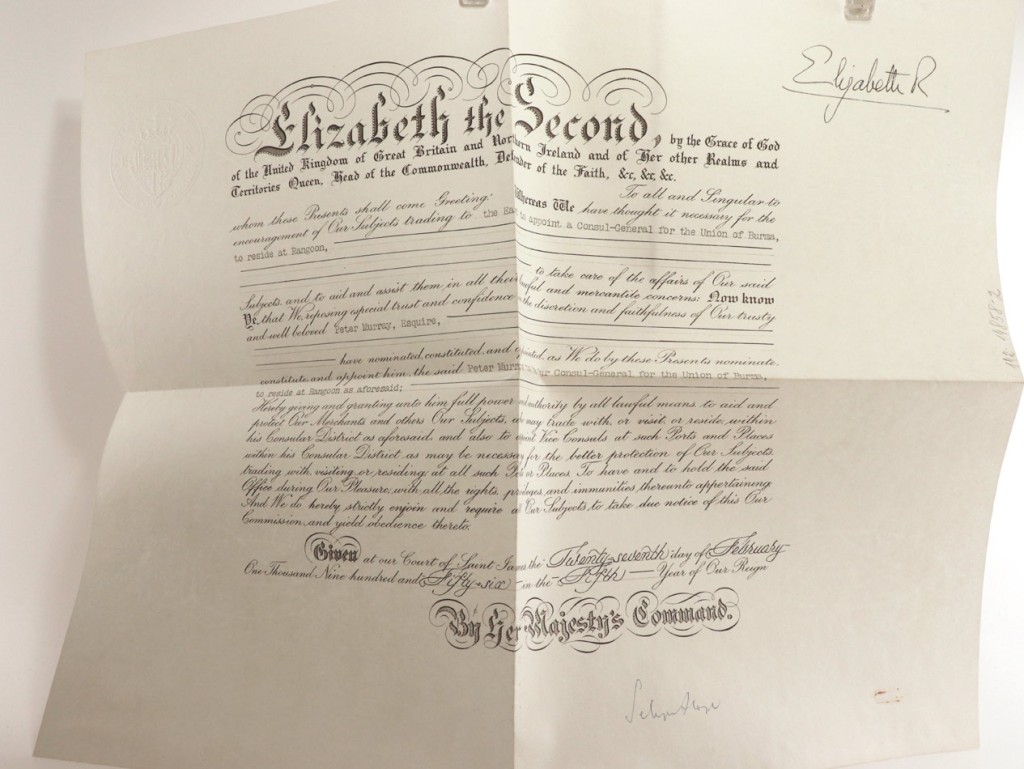 Elizabeth R
Elizabeth the Second, by the Grace of God
of the United Kingdom of Great Britain and Northern Ireland and of Her other Realms and
Territories Queen, Head of the Commonwealth, Defender of the Faith, &c, &c, &c.
To all and Singular to
whom these Presents shall come Greeting: Whereas We have thought it necessary for the
encouragement of Our Subjects trading to the to appoint a Consul-General for the Union of Burma,
to reside at Rangoon,
to take care of the affairs of Our said
Subjects, and to aid and assist them in all their lawful and mercantile concerns: Now know
Ye, that We, reposing especial trust and confidence in the discretion and faithfulness of Our trusty
and well beloved Peter Murray, Esquire,
have nominated, constituted, and appointed, as We do by these Presents nominate,
constitute and appoint him, the said Peter Murray to be Our Consul-General for the Union of Burma,
to reside at Rangoon as aforesaid;
Hereby giving and granting unto him full power and authority by all lawful means, to aid and
protect Our Merchants and others Our Subjects, who may trade with, or visit, or reside, within
his Consular District as aforesaid, and also to appoint Vice Consuls at such Ports and Places
within his Consular District as may be necessary for the better protection of Our Subjects,
trading with, visiting, or residing, at all such Ports or Places. To have and to hold the said
Office during Our Pleasure, with all the rights, privileges, and immunities, thereunto appertaining
And We do hereby strictly enjoin and require all Our Subjects, to take due notice of this Our
Commission, and yield obedience thereto.
Given at our Court of Saint James the Twenty-seventh day of February
One Thousand Nine hundred and Fifty-six in the Fifth Year of Our Reign
By Her Majesty's Command.